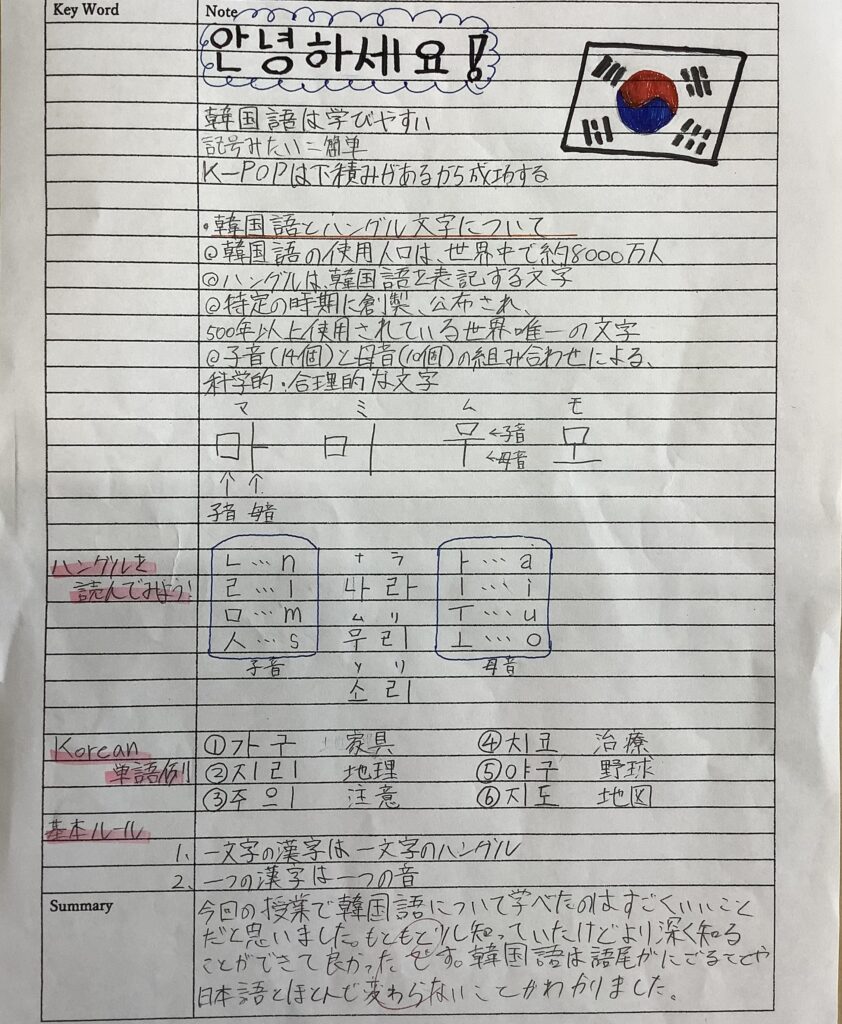 Key Word
Note
안녕하세요!
韓国語は学びやすい
記号みたい=簡単
K-POPは下積みがあるから成功する
・韓国語とハングル文字について
◎韓国語の使用人口は、世界中で約8000万人
◎ハングルは、韓国語を表記する文字
◎特定の時期に創製、公布され、
500年以上使用されている世界唯一の文字
◎子音(14個)と母音(10個)の組み合わせによる、
科学的・合理的な文字
マ ミ ム モ
마 미 무 ←子音 모
←母音
↑ ↑
子音 母音
ハングルを
読んでみよう!
ㄴ…n ナ ラ ㅏ…a
ㄹ…l 나 라 ㅣ…i
ㅁ…m ムリ ㅜ…u
ㅅ…s 무리 ㅗ…o
子音 ソリ 母音
소리
Korean
単語例
①가구 家具 ④치료 治療
②지리 地理 ⑤야구 野球
③주의 注意 ⑥지도 地図
基本ルール
1、一文字の漢字は一文字のハングル
2、一つの漢字は一つの音
Summary
今回の授業で韓国語について学べたのはすごくいいこと
だと思いました。もともと少し知っていたけどより深く知る
ことができて良かったです。韓国語は語尾がにごることや
日本語とほとんど変わらないことがわかりました。